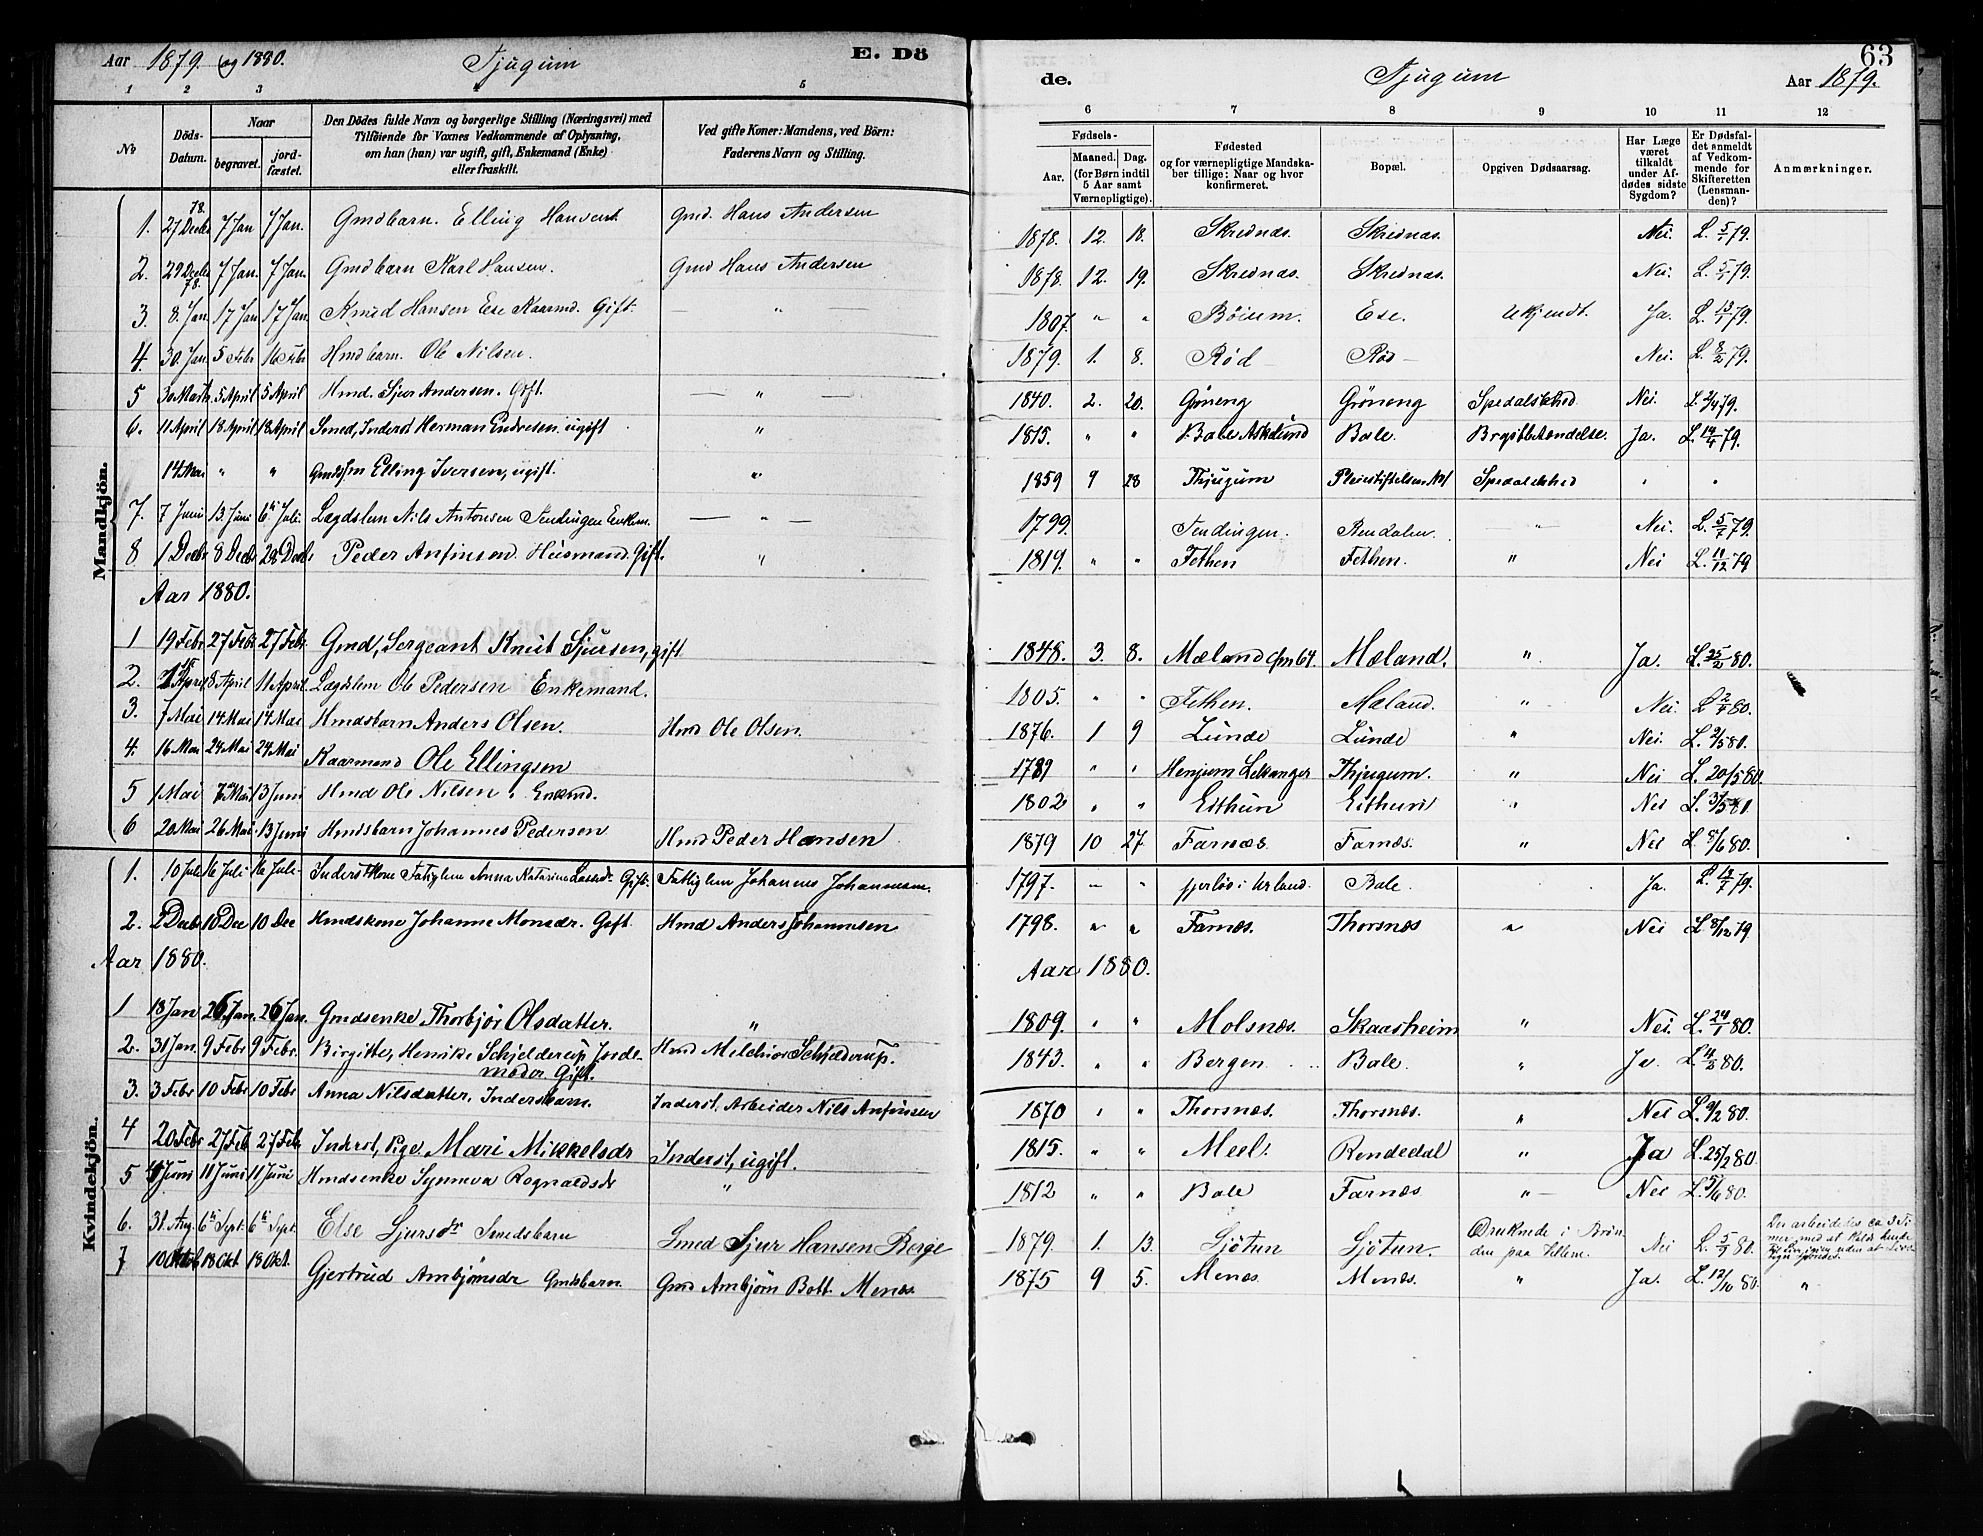 Aar 1879. og 1880. Tjugum E. Dö
1 2 3 4 5
№
Döds-Datum.
Naar
begravet.
jord-fæstet.
Den Dödes fulde Navn og borgerlige Stilling (Næringsvei) med
Tilföiende for Voxnes Vedkommende af Oplysning,
om han (hun) var ugift, gift, Enkemand (Enke)
eller fraskilt.
Ved gifte Koner: Mandens, ved Börn:
Faderens Navn og Stilling.
Mandkjön.
1. 27 Decbr 78. 7 Jan 7 Jan. Gmdbarn. Elling Hansen Gmd. Hans Andersen
2. 29 Decbr 78. 7 Jan. 7 Jan. Gmdbarn Karl Hansen. Gmd Hans Andersen
3. 8. Jan. 17 Jan 17 Jan. Knud Hansen Ese Kaarmd. Gift. — " —
4. 30. Jan. 5 Febr 16 Febr Hmdbarn. Ole Nilsen.
5 30 Marts 5 April 5 April Hmd. Sjur Andersen. Gift. — " —
6. 11 April 18 April 18 April Smed, Inderst Herman Endresen ugift "
14 Mai " " Elling Iversen, ugift. "
7. 7 Juni 13. Juni 6te Juli. Lægdslem Nils Antonsen Tendingen Enkem. — " —
8 1 Decbr 8 Decbr 28 Decbr Peder Anfinsen. Husmand. Gift. "
Aar 1880.
1 19 Febr 27 Febr 27 Febr Gmd, Sergeant Knut Sjursen, gift
2. 1 April 8 April 11 April. Lægdslem Ole Pedersen Enkemand.
3. 7 Mai 14 Mai 14 Mai Hmdsbarn Anders Olsen. Hmd Ole Olsen.
4. 16 Mai 24 Mai 24 Mai Kaarmand Ole Ellingsen
5 1 Mai 7 Mai 13 Juni Hmd Ole Nilsen. Enkmd.
6 20 Mai 26 Mai 13 Juni Hmdsbarn Johannes Pedersen Hmd Peder Hansen
Kvindekjön.
1. 10 Juli 16 Juli 16 Juli. Inderstkone Fatiglem Anna Katarina Lassedr. Gift. Fattiglem Johannes Johannesen.
2. 2 Decbr 10 Dec 10 Dec Hmdskone Johanne Monsdr. Gift Hmd Anders Johannesen
Aar 1880.
1 18 Jan 26 Jan. 26 Jan. Gmdsenke Thorbjør Olsdatter. "
2. 31 Jan. 9 Febr 9 Febr. Birgitte, Henrike Schjelderup Jorde-
moder Gift. Hmd Melchior Schjelderup.
3. 3 Febr 10 Febr 10 Febr Anna Nilsdatter. Inderstbarn. Inderst. Arbeider Nils Anfinsen
4 20 Febr 27 Febr 27 Febr Inderst, Pige. Mari Mikkelsdr Inderst, ugift.
5 4 Juni 11 Juni 11 Juni Hmdsenke Synneva Rognaldsdr "
6. 31. Aug. 6te Sept. 6te Sept. Else Sjursdr Smedsbarn Smed Sjur Hansen Berge
7 10 Oktob 18 Okt 18 Okt. Gjertrud Ambjønsdr Gmdsbarn. Gmd Ambjørn Bott. Menæs.
63
de. Tjugum Aar 1879.
6 7 8 9 10 11 12
Fødsels-
Aar.
Maaned. Dag.
(for Børn indtil
5 Aar samt
Værnepligtige).
Fødested
og for værnepligtige Mandska-
ber tillige: Naar og hvor
konfirmeret.
Bopæl.
Opgiven Dødsaarsag.
Har Læge
været
tilkaldt
under Af-
dødes sidste
Sygdom?
Er Dødsfal-
det anmeldt
af Vedkom-
mende for
Skifteretten
(Lensman-
den)?
Anmærkninger.
1878. 12. 18. Skrednæs. Skrednæs. Nei. L. 5/1 79.
1878. 12. 19. Skrednæs. Skrednæs. Nei. L. 5/1 79.
1807. " " Böium. Ese. Ukjendt. Ja. L. 13/1 79.
1879. 1. 8. Rød Röd — Nei. L. 8/2 79.
1840. 2. 20. Gröneng Gröneng Spedalskhed Nei. L. 2/4 79.
1815. " " Bale Askelund Bale. Brystbetændelse. Ja. L. 14/4 79.
1859 9 28 Thjugum Pleiestiftelsen №1 Spedalskhed " "
1799. Tendingen. Rendalen. " Nei. L. 5/7 79.
1819. " " Fethen Fethen. " Nei L. 11/12 79
1848. 3. 8. Mæland Cfm 64. Mæland. " Ja. L. 25/2 80.
1805. " " Fethen. Mæland. " Nei. L 2/4 80.
1876. 1 9 Lunde Lunde " Nei. L. 2/5 80.
1789 " " Henjum Lekanger Thjugum. " Nei L. 20/5 80.
1802 " " Eithun Eithun " Nei L. 3/5 80
1879 10 27 Farnæs. Farnæs. " Nei L. 8/6 80.
1797. — " Fjerløs i Urland. Bale. Ja. L. 14/7 79.
1798. " " Farnæs. Thorsnæs " Nei L 8/12 79
Aar 1880.
1809. " " Molsnæs. Skaasheim " Nei. L. 24/1 80.
1843. " " Bergen Bale. " Ja. L 11/2 80.
1870 " " Thorsnæs. Thorsnæs. " Nei L. 9/2 80.
1815. " " Meel. Rendedal " Ja L. 25/2 80.
1812 " " Bale Farnæs " — Nei L. 5/6 80.
1879. 1. 13. Sjötun Sjötun. Druknede i Brøn
den paa Nei L. 5/9 80. Der arbeidedes ca 3 Ti
mer med at
1875 9 5. Menæs. Menæs. " Ja. L. 12/10 80. "